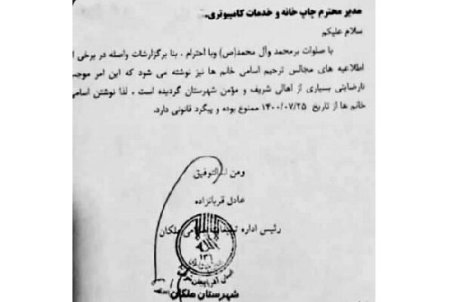 مدیر محترم چاپ خانه و خدمات کامپیوتری،
سلام علیکم
با صلوات برمحمد وآل محمد(ص) وبا احترام ، بنا بر گزارشات واصله در برخی از
اطلاعیه های مجالس ترحیم اسامی خانم ها نیز نوشته می شود که این امر موجب
نارضایتی بسیاری از اهالی شریف و مؤمن شهرستان گردیده است ، لذا نوشتن اسامی
خانم ها از تاریخ ۱۴۰۰/۰۷/۲۵ ممنوع بوده و پیگرد قانونی دارد.
ومن الله التوفیق
عادل قربانزاده
رئیس اداره تبلیغات اسلامی ملکان
شهرستان ملکان